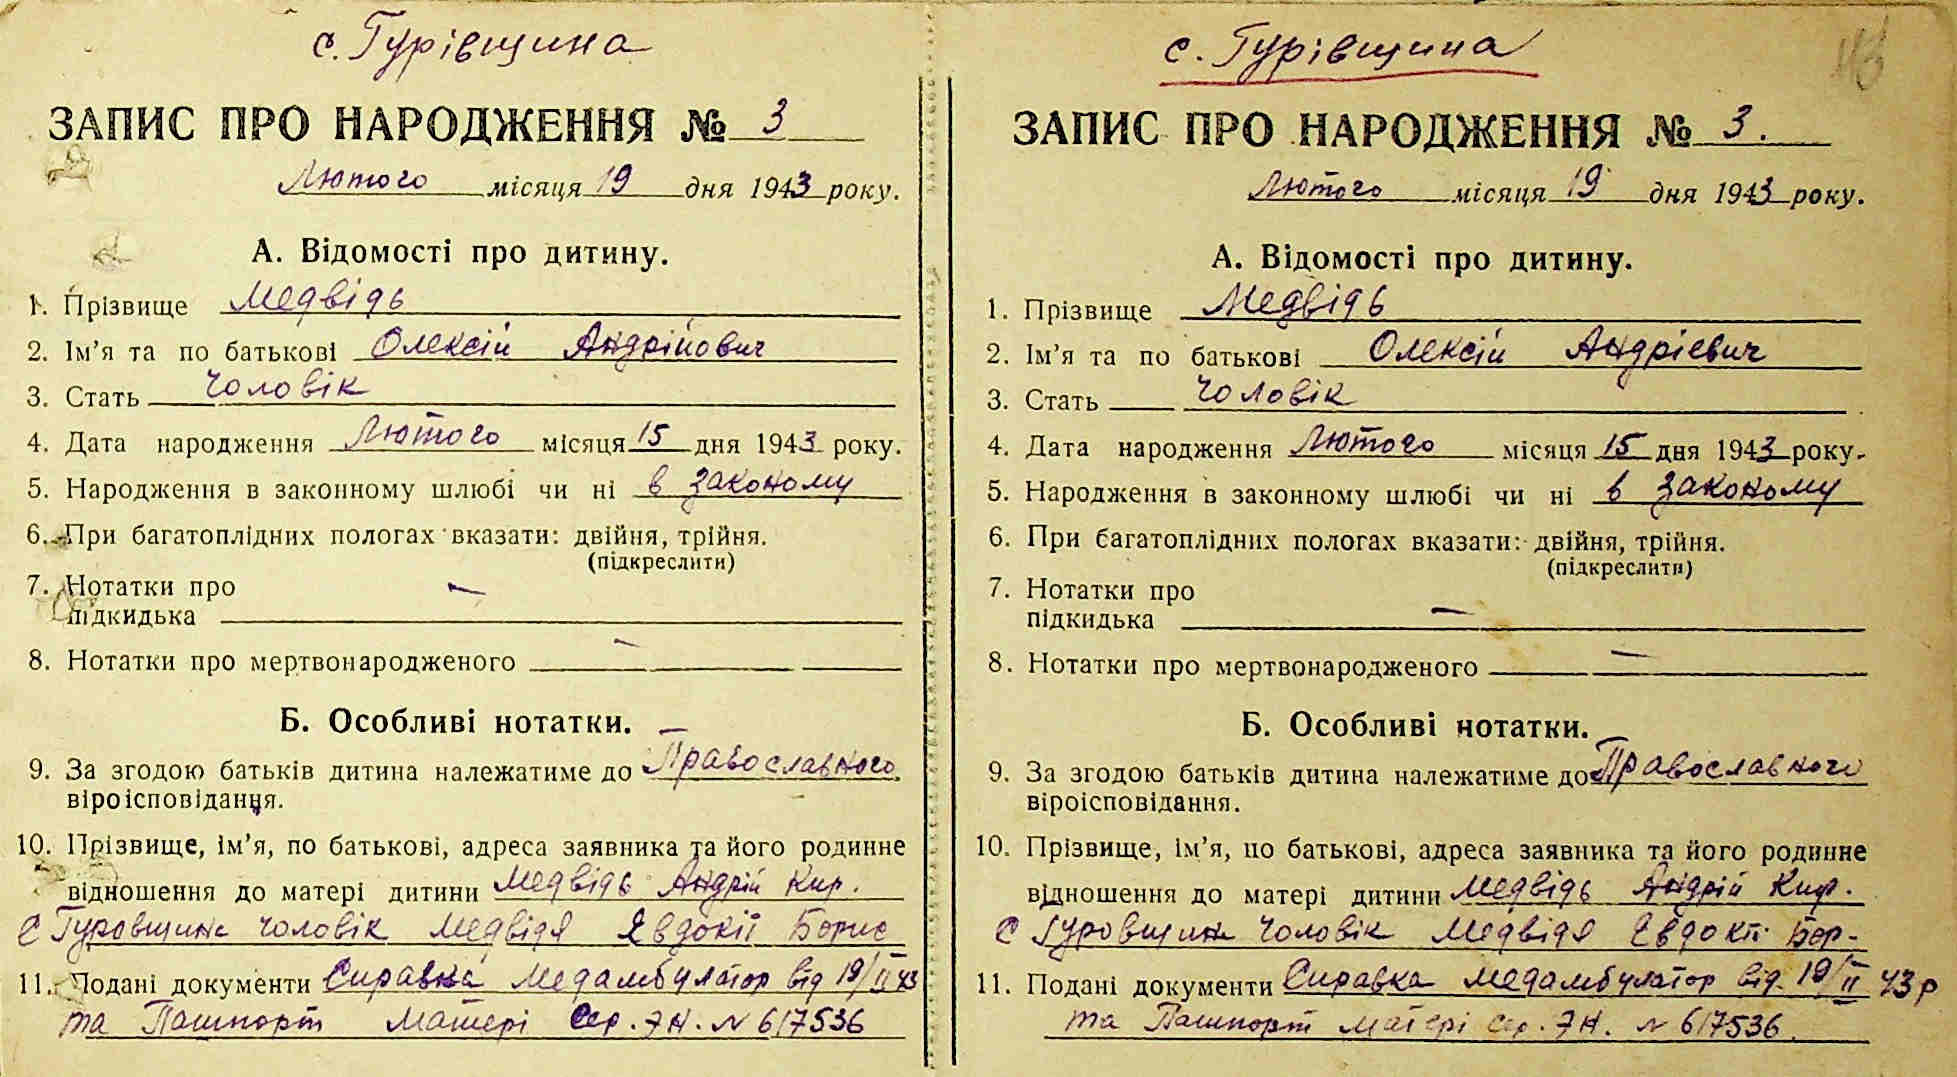 с. Гурівщина
ЗАПИС ПРО НАРОДЖЕННЯ № 3
Лютого місяця 19 дня 1943 року.
А. Відомості про дитину.
1. Прізвище Медвідь
2. Ім'я та по батькові Олексій Андрійович
3. Стать Чоловік
4. Дата народження Лютого місяця 15 дня 1943 року.
5. Народження в законному шлюбі чи ні в законому
6. При багатоплідних пологах вказати: двійня, трійня.
(підкреслити)
7. Нотатки про
підкидька —
8. Нотатки про мертвонародженого —
Б. Особливі нотатки.
9. За згодою батьків дитина належатиме до Православного
віроісповідання.
10. Прізвище, ім'я, по батькові, адреса заявника та його родинне
відношення до матері дитини Медвідь Андрій Кир.
с Гуровщина Чоловік Медвідя Явдокії Борис
11. Подані документи Справка Медамбулатор від 19/II 43
та Пашпорт Матері Сер. ЭН. N 617536
с. Гурівщина
ЗАПИС ПРО НАРОДЖЕННЯ № 3.
Лютого місяця 19 дня 1943 року.
А. Відомості про дитину.
1. Прізвище Медвідь
2. Ім'я та по батькові Олексій Андрієвич
3. Стать Чоловік
4. Дата народження Лютого місяця 15 дня 1943 року.
5. Народження в законному шлюбі чи ні в законому
6. При багатоплідних пологах вказати: двійня, трійня.
(підкреслити)
7. Нотатки про
підкидька —
8. Нотатки про мертвонародженого —
Б. Особливі нотатки.
9. За згодою батьків дитина належатиме до Православного
віроісповідання.
10. Прізвище, ім'я, по батькові, адреса заявника та його родинне
відношення до матері дитини Медвідь Андрій Кир.
с Гуровщин Чоловік Медвідя Евдокії Бор-
11. Подані документи Справка медамбулатор від. 19/II 43 р
та Пашпорт матері сер. ЭН. N 617536.